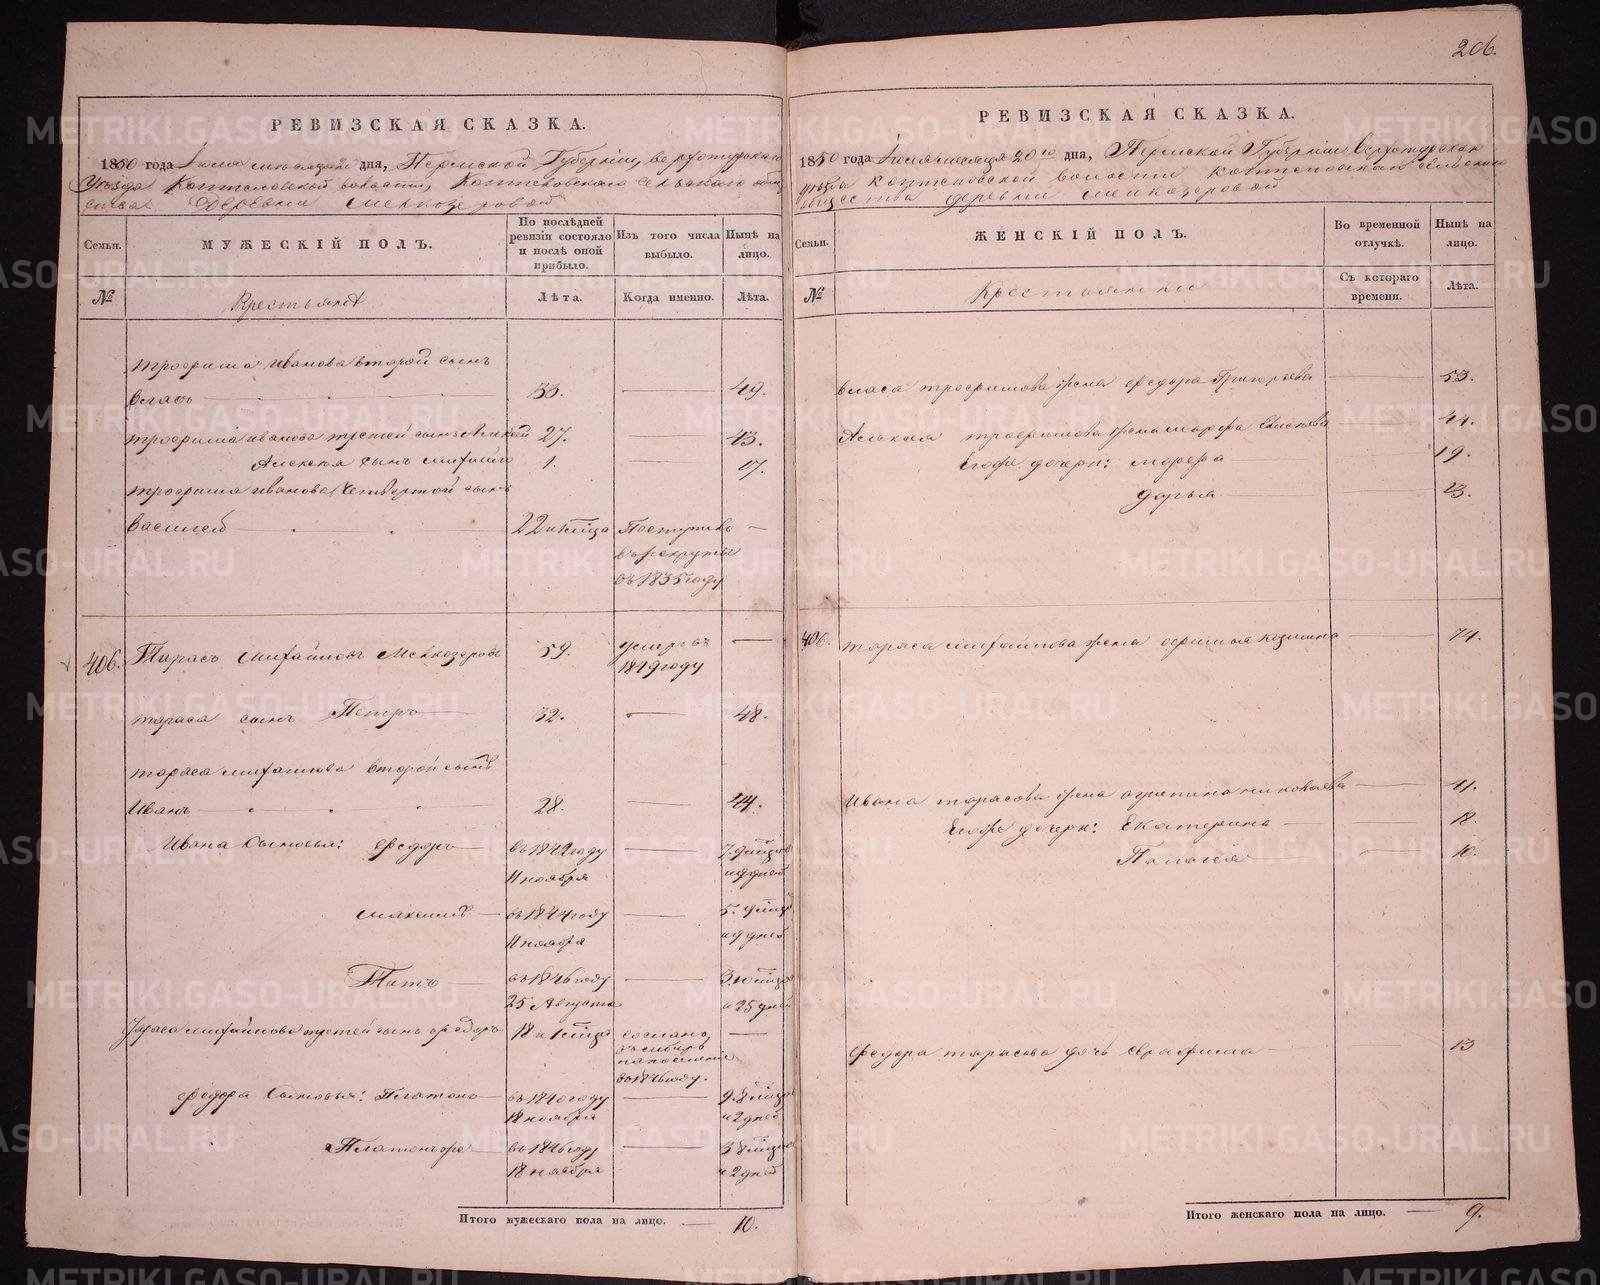 206.
РЕВИЗСКАЯ СКАЗКА.
1850 года Іюля месяца 20 дня, Пермской Губерніи, верхотурскаго
Уезда Коптеловской волости, Коптеловскаго сельскаго общ
ства деревни мелкозеровой
Семьи.
МУЖЕСКІЙ ПОЛЪ.
По послѣдней ревизіи состояло и послѣ оной прибыло.
Изъ того числа выбыло.
Нынѣ на лицо.
№
Крестьяне
Лѣта.
Когда именно.
Лѣта.
трофима иванова второй сынъ
власъ 33. 49.
трофима иванова третей сынъ Алексей 27. 43.
Алексея сынъ михайло 1. 17.
трофима иванова четвертой сынъ
василей 22 Поступилъ
въ рекруты
въ 1835 году
406. Тарасъ михайловъ Мелкозеровъ 59. умеръ въ
1849 году
тараса сынъ Петръ 32. 48.
тараса михайлова второй сынъ
Иванъ 28. 44.
Ивана Сыновья: федоръ въ 1842 году
11 ноября
максимъ въ 1844 году
11 ноября
въ 1846 году
25 Августа
тараса михайлова третей сынъ федоръ 18 сосланъ
въ сибирь
на поселеніе
въ 1846 году.
федора Сыновья: Платонъ въ 1840 году
18 ноября
и 2 дней
Платонъ же въ 1846 году
18 ноября
и 2 дней
Итого мужескаго пола на лицо. 10.
РЕВИЗСКАЯ СКАЗКА.
1850 года Іюля месяца 20го дня, Пермской Губерніи Верхотурскаго
уезда коптеловской волости коптеловскаго сельскаго
общества деревни мелкозеровой
Семьи.
ЖЕНСКІЙ ПОЛЪ.
Во временной отлучкѣ.
Нынѣ на лицо.
№
Съ котораго времени.
Лѣта.
власа трофимова жена федора Григорьева 53.
Алексея трофимова жена марфа 44.
Егоже дочери: марфа 19.
дарья 13.
406. тараса михайлова жена 74.
Ивана тарасова жена агрипина николаева 41.
Егоже дочери: Екатерина 18.
Палагея 10.
федора тарасова дочь 13
Итого женскаго пола на лицо. 9.
METRIKI.GASO-URAL.RU